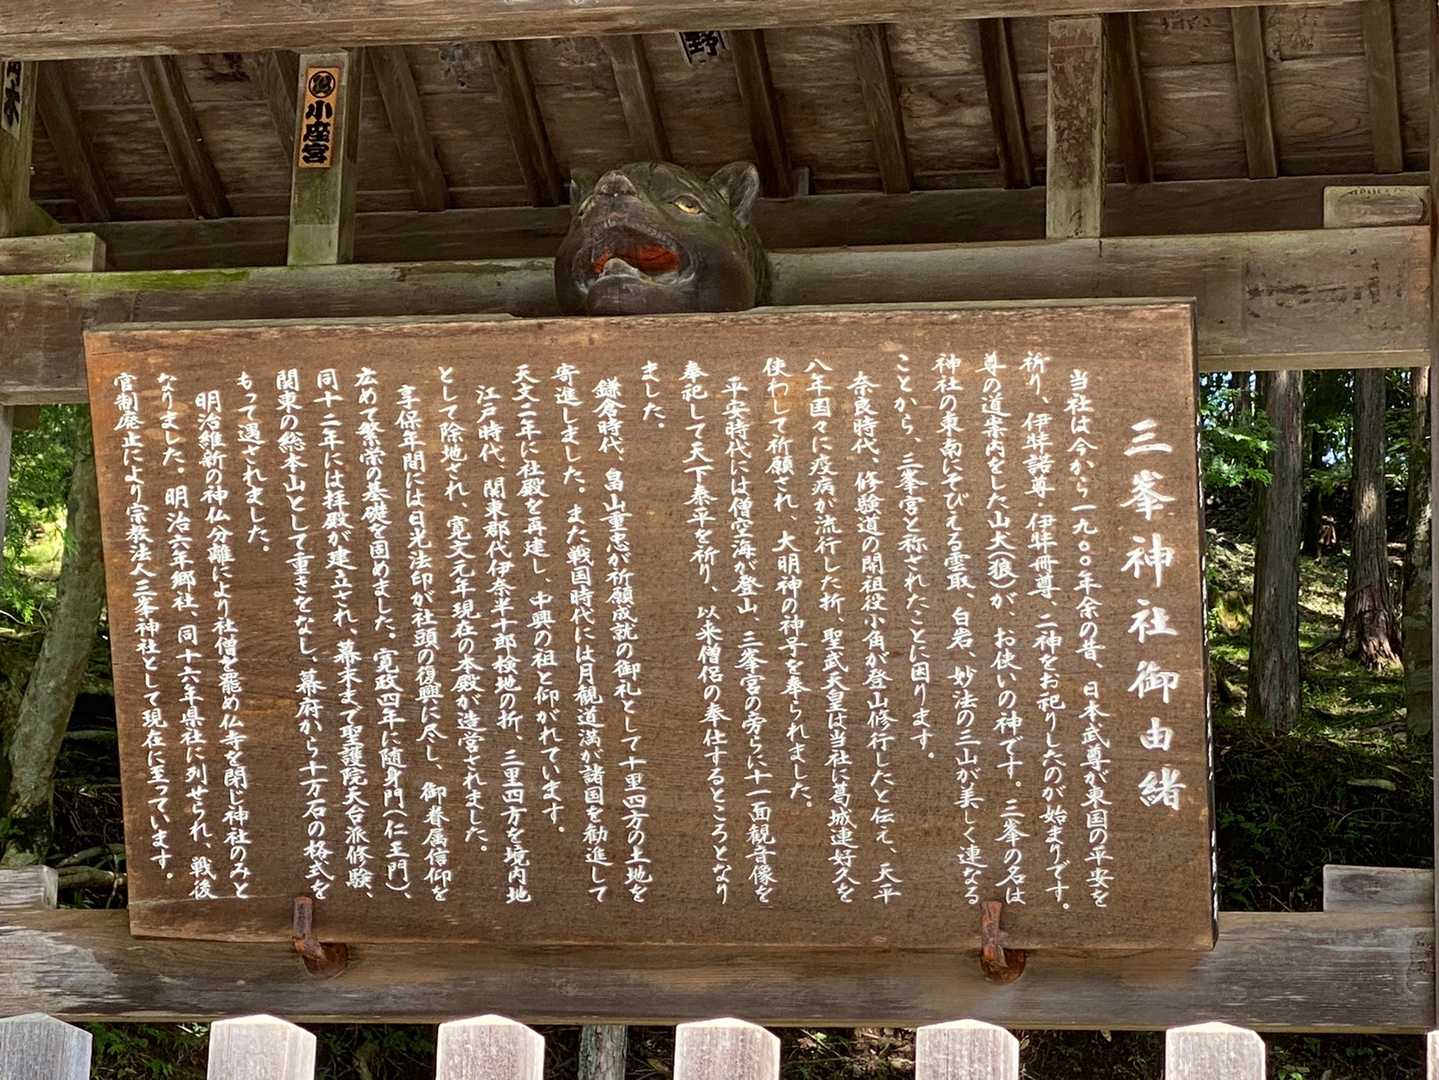 三峯神社御由緒
当社は今から一九〇〇年余の昔、日本武尊が東国の平安を
祈り、伊弉諾尊・伊弉册尊、二神をお祀りしたのが始まりです。
尊の道案内をした山犬(狼)が、お使いの神です。三峯の名は
神社の東南にそびえる雲取、白岩、妙法の三山が美しく連なる
ことから、三峯宮と称されたことに因ります。
奈良時代、修験道の開祖役小角が登山修行したと伝え、天平
八年国々に疫病が流行した折、聖武天皇は当社に葛城連好久を
使わして祈願され、大明神の神号を奉られました。
平安時代には僧空海が登山、三峯宮の旁らに十一面観音像を
奉祀して天下泰平を祈り、以来僧侶の奉仕するところとなり
ました。
鎌倉時代、畠山重忠が祈願成就の御礼として十里四方の土地を
寄進しました。また戦国時代には月観道満が諸国を勧進して
天文二年に社殿を再建し、中興の祖と仰がれています。
江戸時代、関東郡代伊奈半十郎検地の折、三里四方を境内地
として除地され、寛文元年現在の本殿が造営されました。
享保年間には日光法印が社頭の復興に尽し、御眷属信仰を
広めて繁栄の基礎を固めました。寛政四年に随身門(仁王門)、
同十二年には拝殿が建立され、幕末まで聖護院天台派修験、
関東の総本山として重きをなし、幕府から十万石の格式を
もって遇されました。
明治維新の神仏分離により社僧を罷め仏寺を閉じ神社のみと
なりました。明治六年郷社、同十六年県社に列せられ、戦後
官制廃止により宗教法人三峯神社として現在に至っています。
小座宮
野